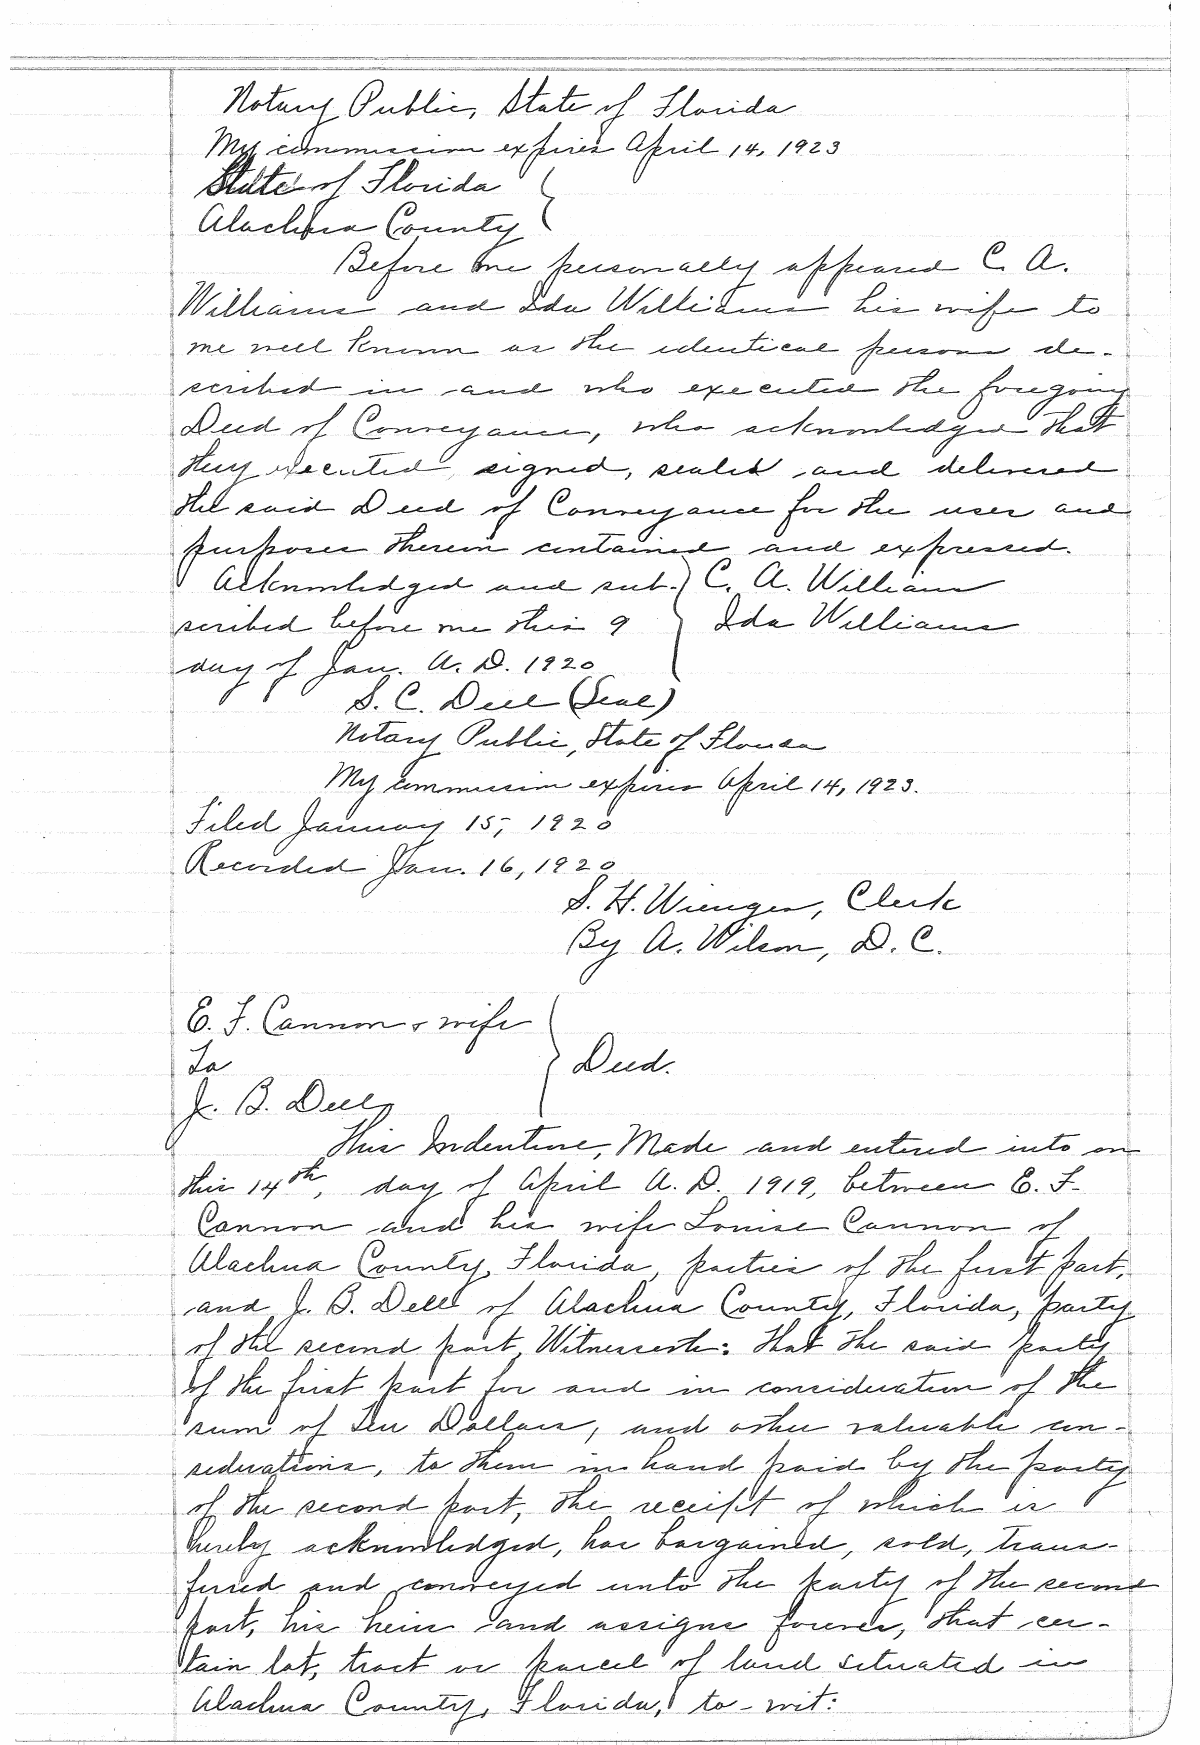 Notary Public, State of Florida
My commission expires April 14, 1923
State of Florida
Alachua County
Before me personally appeared C. A.
Williams and Ida Williams his wife to
me well known as the identical persons de-
scribed in and who executed the foregoing
Deed of Conveyance, who acknowledged that
they executed, signed, sealed and delivered
the said Deed of Conveyance for the uses and
purposes therein contained and expressed.
Acknowledged and sub- C. A. William
scribed before me this 9 Ida Williams
day of Jan. A. D. 1920
S. C. Dell (Seal)
Notary Public, State of Florida
My commission expires April 14, 1923.
Filed January 15, 1920
Recorded Jan. 16, 1920
S. H. Wienges, Clerk
By A. Wilson, D. C.
E. F. Cannon & wife
To Deed.
J. B. Dell
This Indenture, Made and entered into on
this 14th, day of April A. D. 1919, between E. F.
Cannon and his wife Louise Cannon of
Alachua County, Florida, parties of the first part,
and J. B. Dell of Alachua County, Florida, party
of the second part, Witnesseth: that the said party
of the first part for and in consideration of the
sum of Ten Dollars, and other valuable con-
siderations, to them in hand paid by the party
of the second part, the receipt of which is
hereby acknowledged, has bargained, sold, trans-
ferred and conveyed unto the party of the second
part, his heirs and assigns forever, that cer-
tain lot, tract or parcel of land situated in
Alachua County, Florida, to-wit: